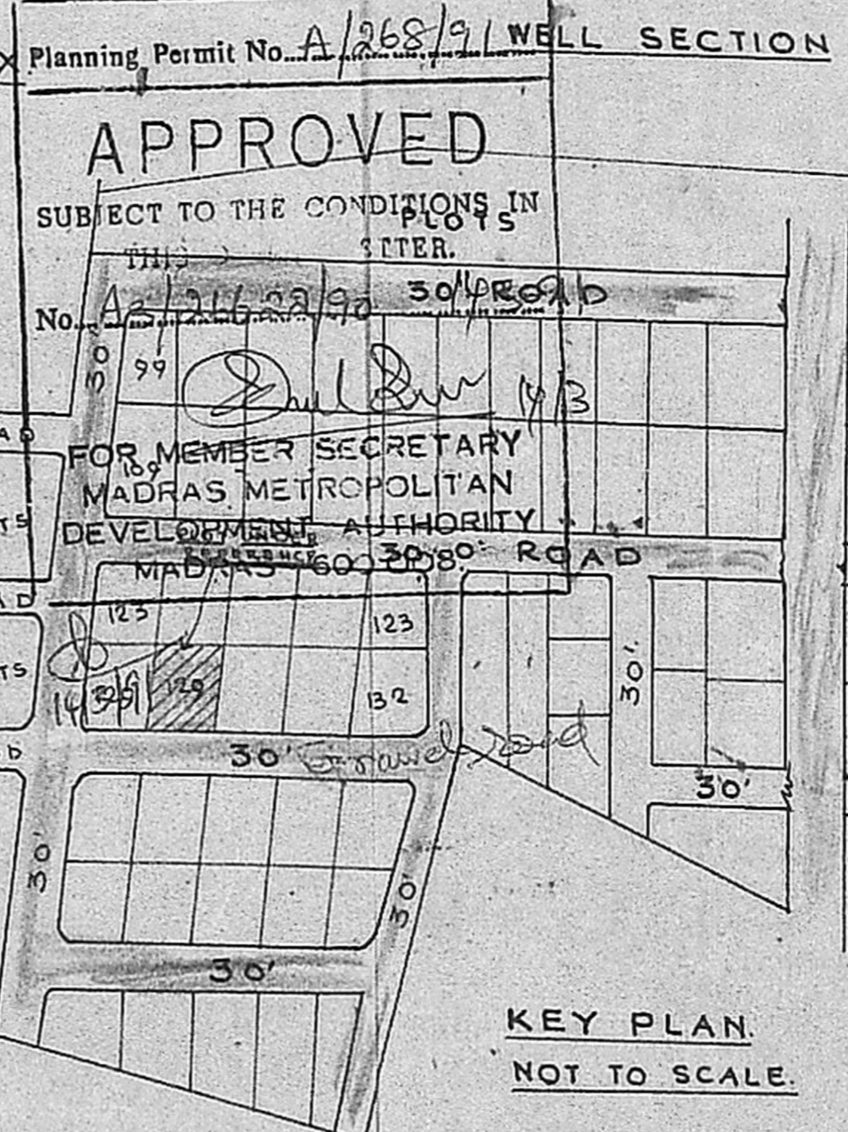 Planning Permit No. A/268/91
WELL SECTION
APPROVED
SUBJECT TO THE CONDITIONS IN
PLOTS
THIS
No.
30' ROAD
30'
99
14/3
FOR MEMBER SECRETARY
109
MADRAS METROPOLITAN
DEVELOPMENT AUTHORITY
MADRAS
30'-0" ROAD
123
123
129
132
30'
30' Gravel Road
30'
30'
30'
30'
KEY PLAN.
NOT TO SCALE.